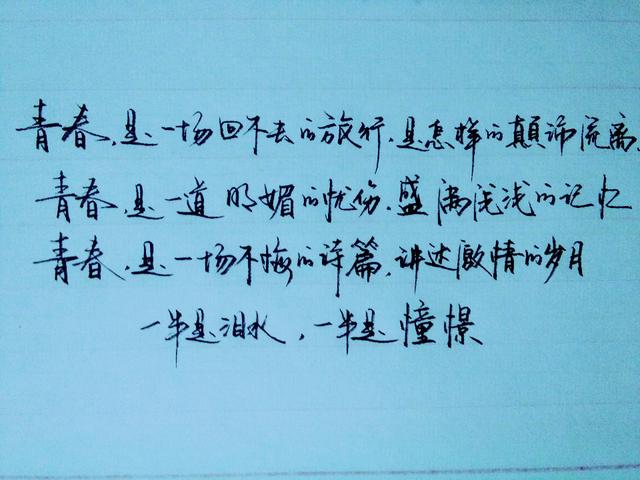 青春,是一场回不去的旅行,是怎样的颠沛流离,
青春,是一道明媚的忧伤,盛满浅浅的记忆
青春,是一场不悔的诗篇,讲述激情的岁月
一半是泪水,一半是憧憬